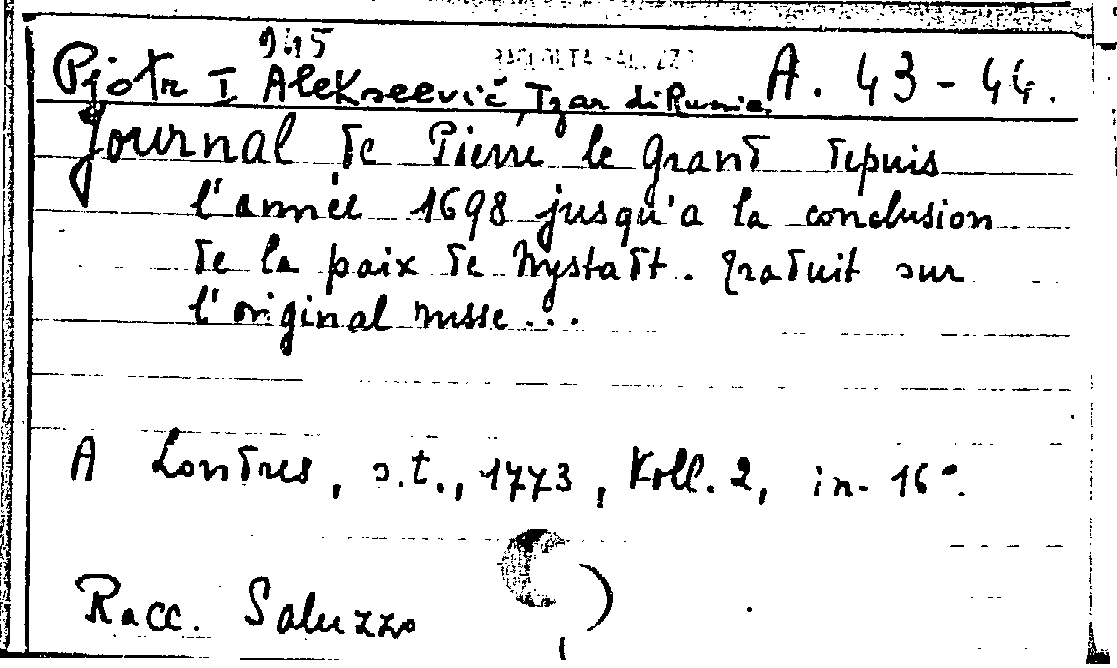 945
RACCOLTA SALUZZO
Pjotr I Alekseevič, Tzar di Russia. A. 43-44.
Journal de Pierre le Grand depuis
l'année 1698 jusqu'a la conclusion
de la paix de Nystadt. Traduit sur
l'original russe...
A Londres, s.t., 1773, Voll. 2, in-16°.
Racc. Saluzzo